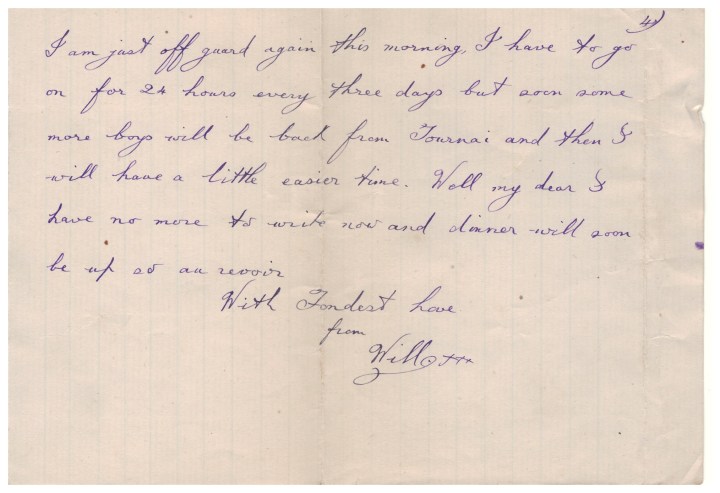 4)
I am just off guard again this morning, I have to go
on for 24 hours every three days but soon some
more boys will be back from Tournai and then I
will have a little easier time. Well my dear I
have no more to write now and dinner will soon
be up so au revoir
With Fondest Love
from
Will xxx